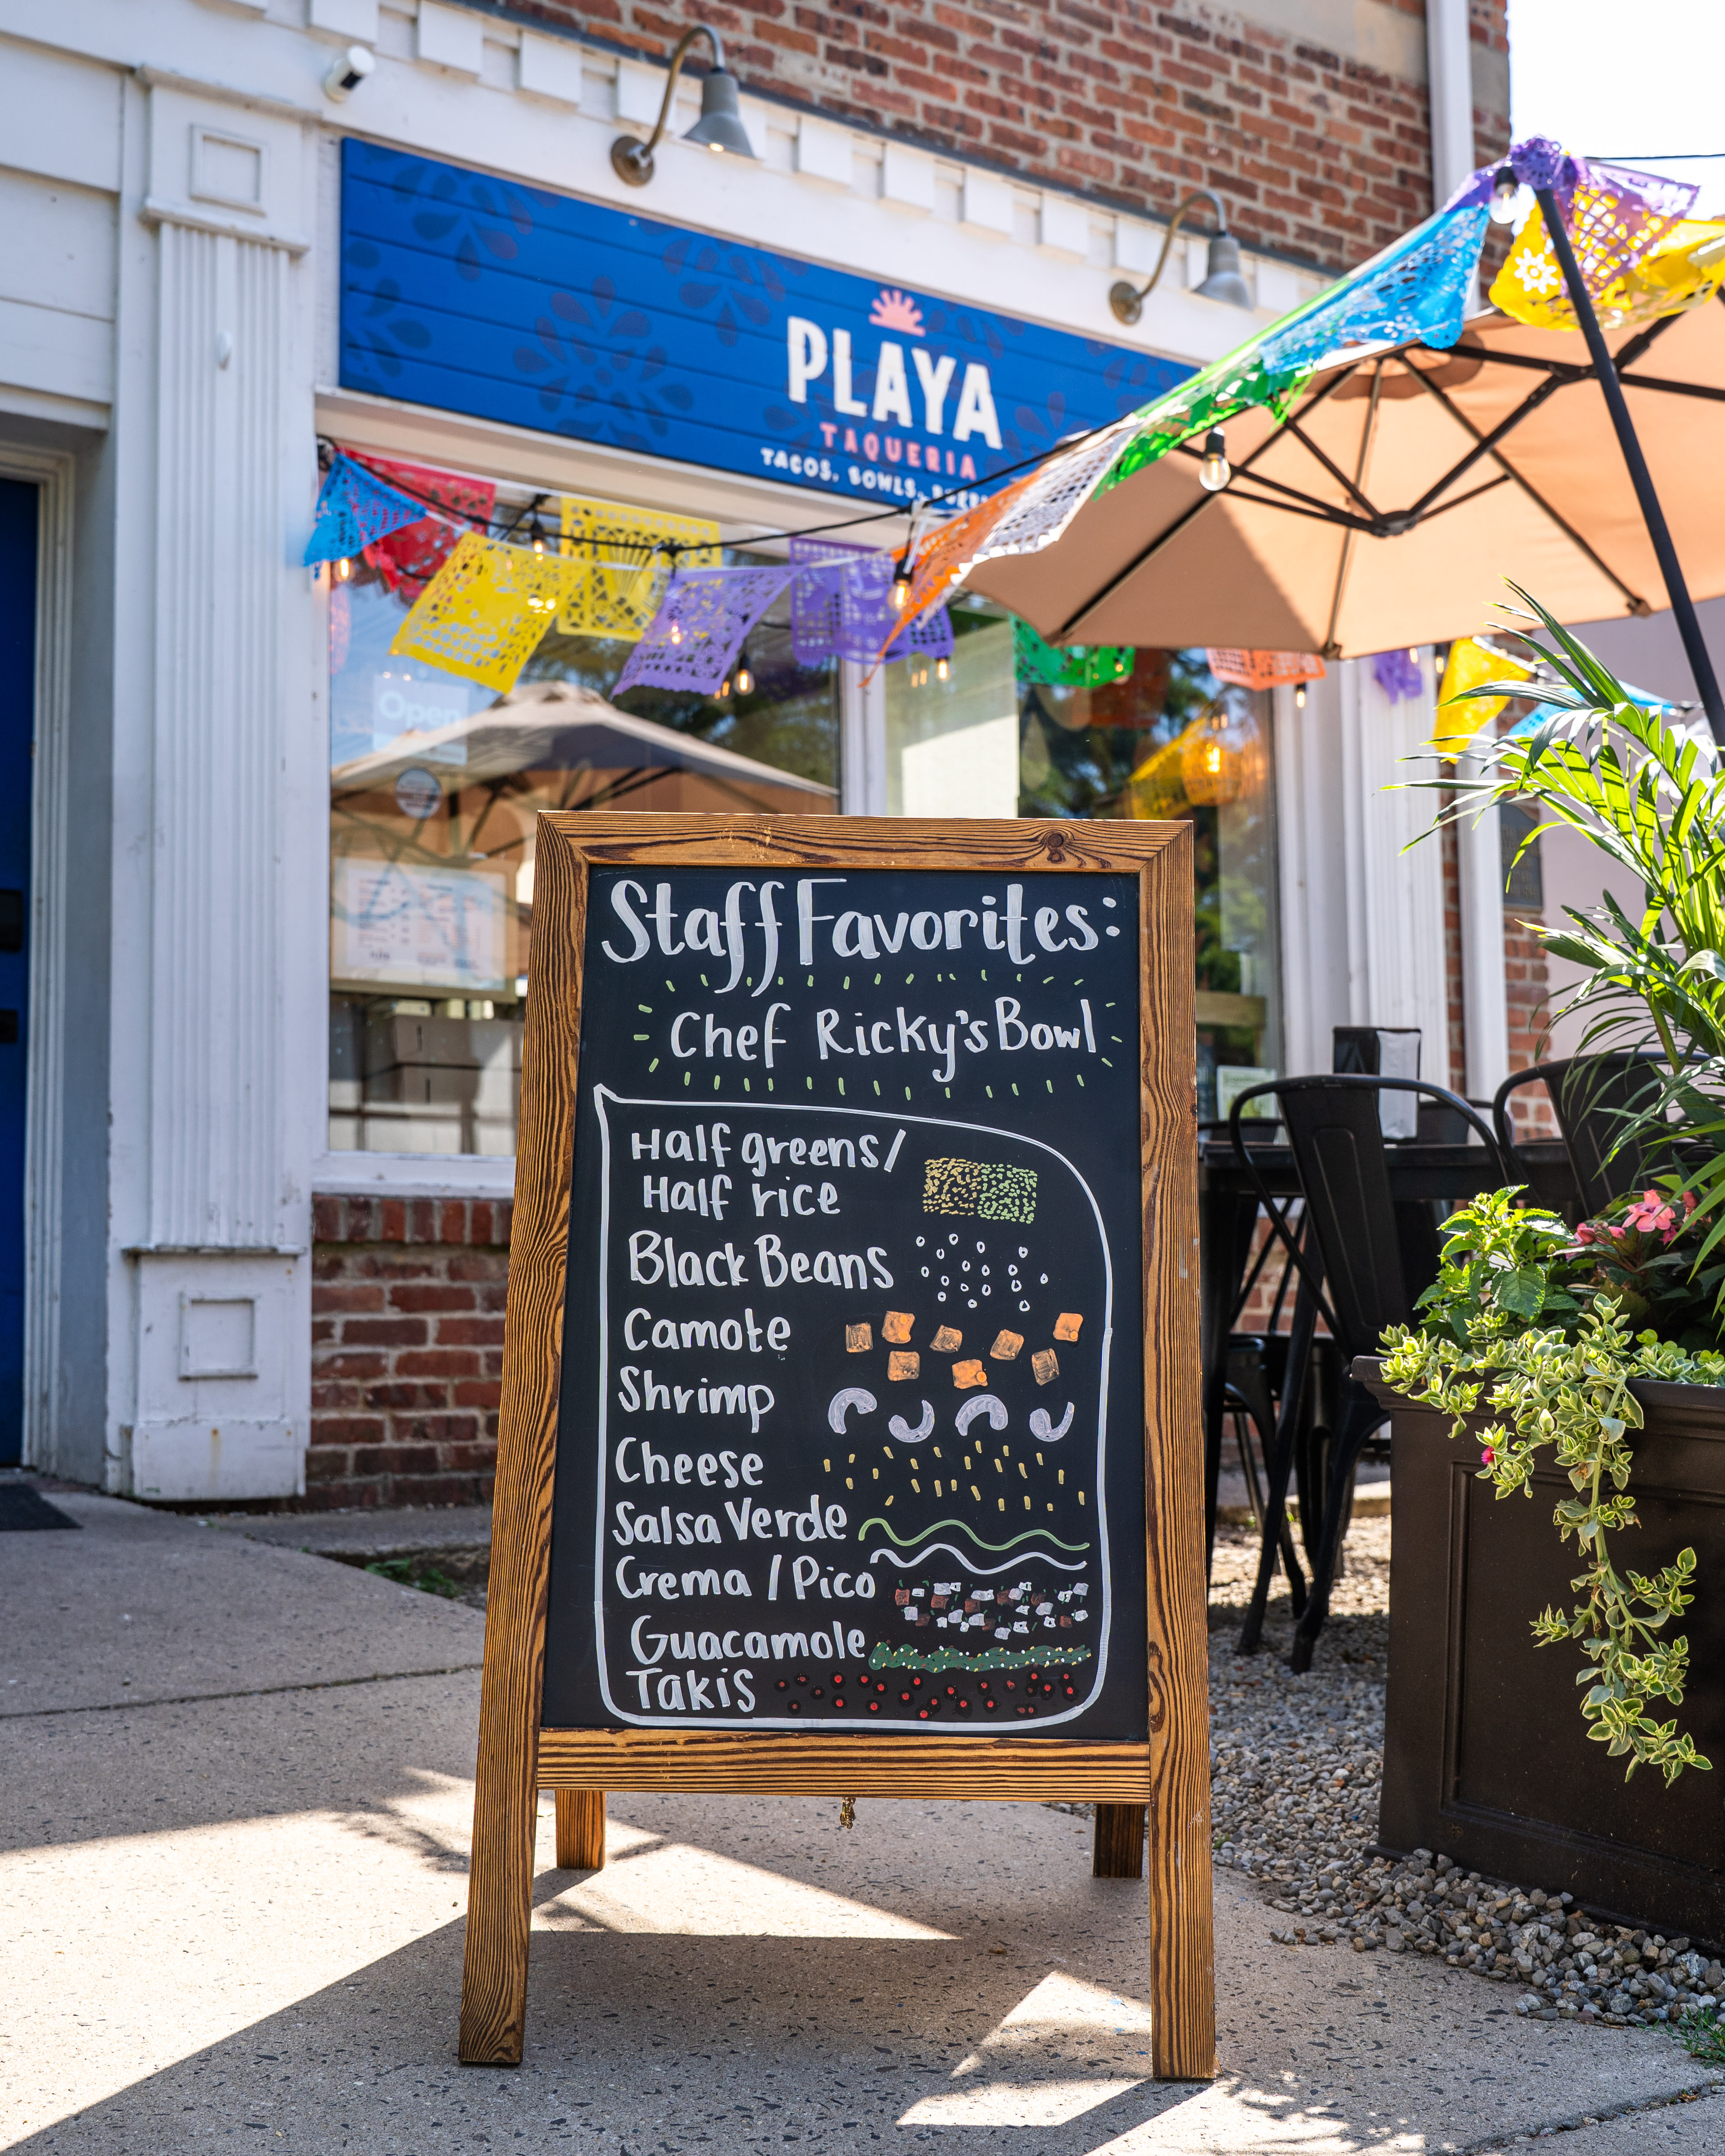 PLAYA
TAQUERIA
TACOS, BOWLS,
Open
Staff Favorites:
Chef Ricky's Bowl
Half greens/
Half rice
Black Beans
Camote
Shrimp
Cheese
Salsa Verde
Crema / Pico
Guacamole
Takis